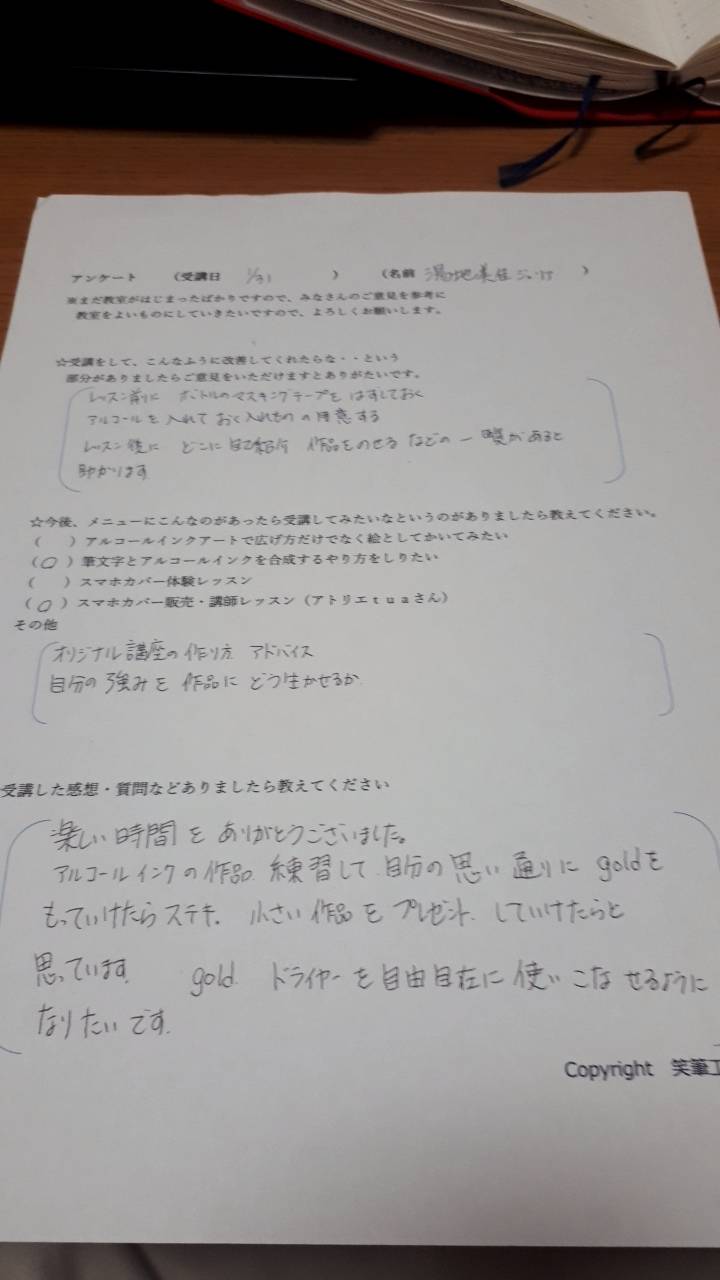 アンケート （受講日 1/31 ） （名前 湯地美佳 ）
※まだ教室がはじまったばかりですので、みなさんのご意見を参考に
教室をよいものにしていきたいですので、よろしくお願いします。
☆受講をして、こんなふうに改善してくれたらな・・という
部分がありましたらご意見をいただけますとありがたいです。
レッスン前に ボトルのマスキングテープを はずしておく
アルコールを 入れて おく入れもの の用意する
レッスン後に どこに 自己紹介 作品をのせる などの 一覧があると
助かります
☆今後、メニューにこんなのがあったら受講してみたいなというのがありましたら教えてください。
（ ）アルコールインクアートで広げ方だけでなく絵としてかいてみたい
（○）筆文字とアルコールインクを合成するやり方をしりたい
（ ）スマホカバー体験レッスン
（○）スマホカバー販売・講師レッスン（アトリエtuaさん）
その他
オリジナル講座の作り方 アドバイス
自分の強みを 作品に どう生かせるか
受講した感想・質問などありましたら教えてください
楽しい時間を ありがとうございました。
アルコールインクの作品 練習して 自分の思い通りに goldを
もっていけたらステキ。 小さい作品を プレゼント していけたらと
思っています gold ドライヤーを自由自在に使いこなせるように
なりたいです.
Copyright 笑筆